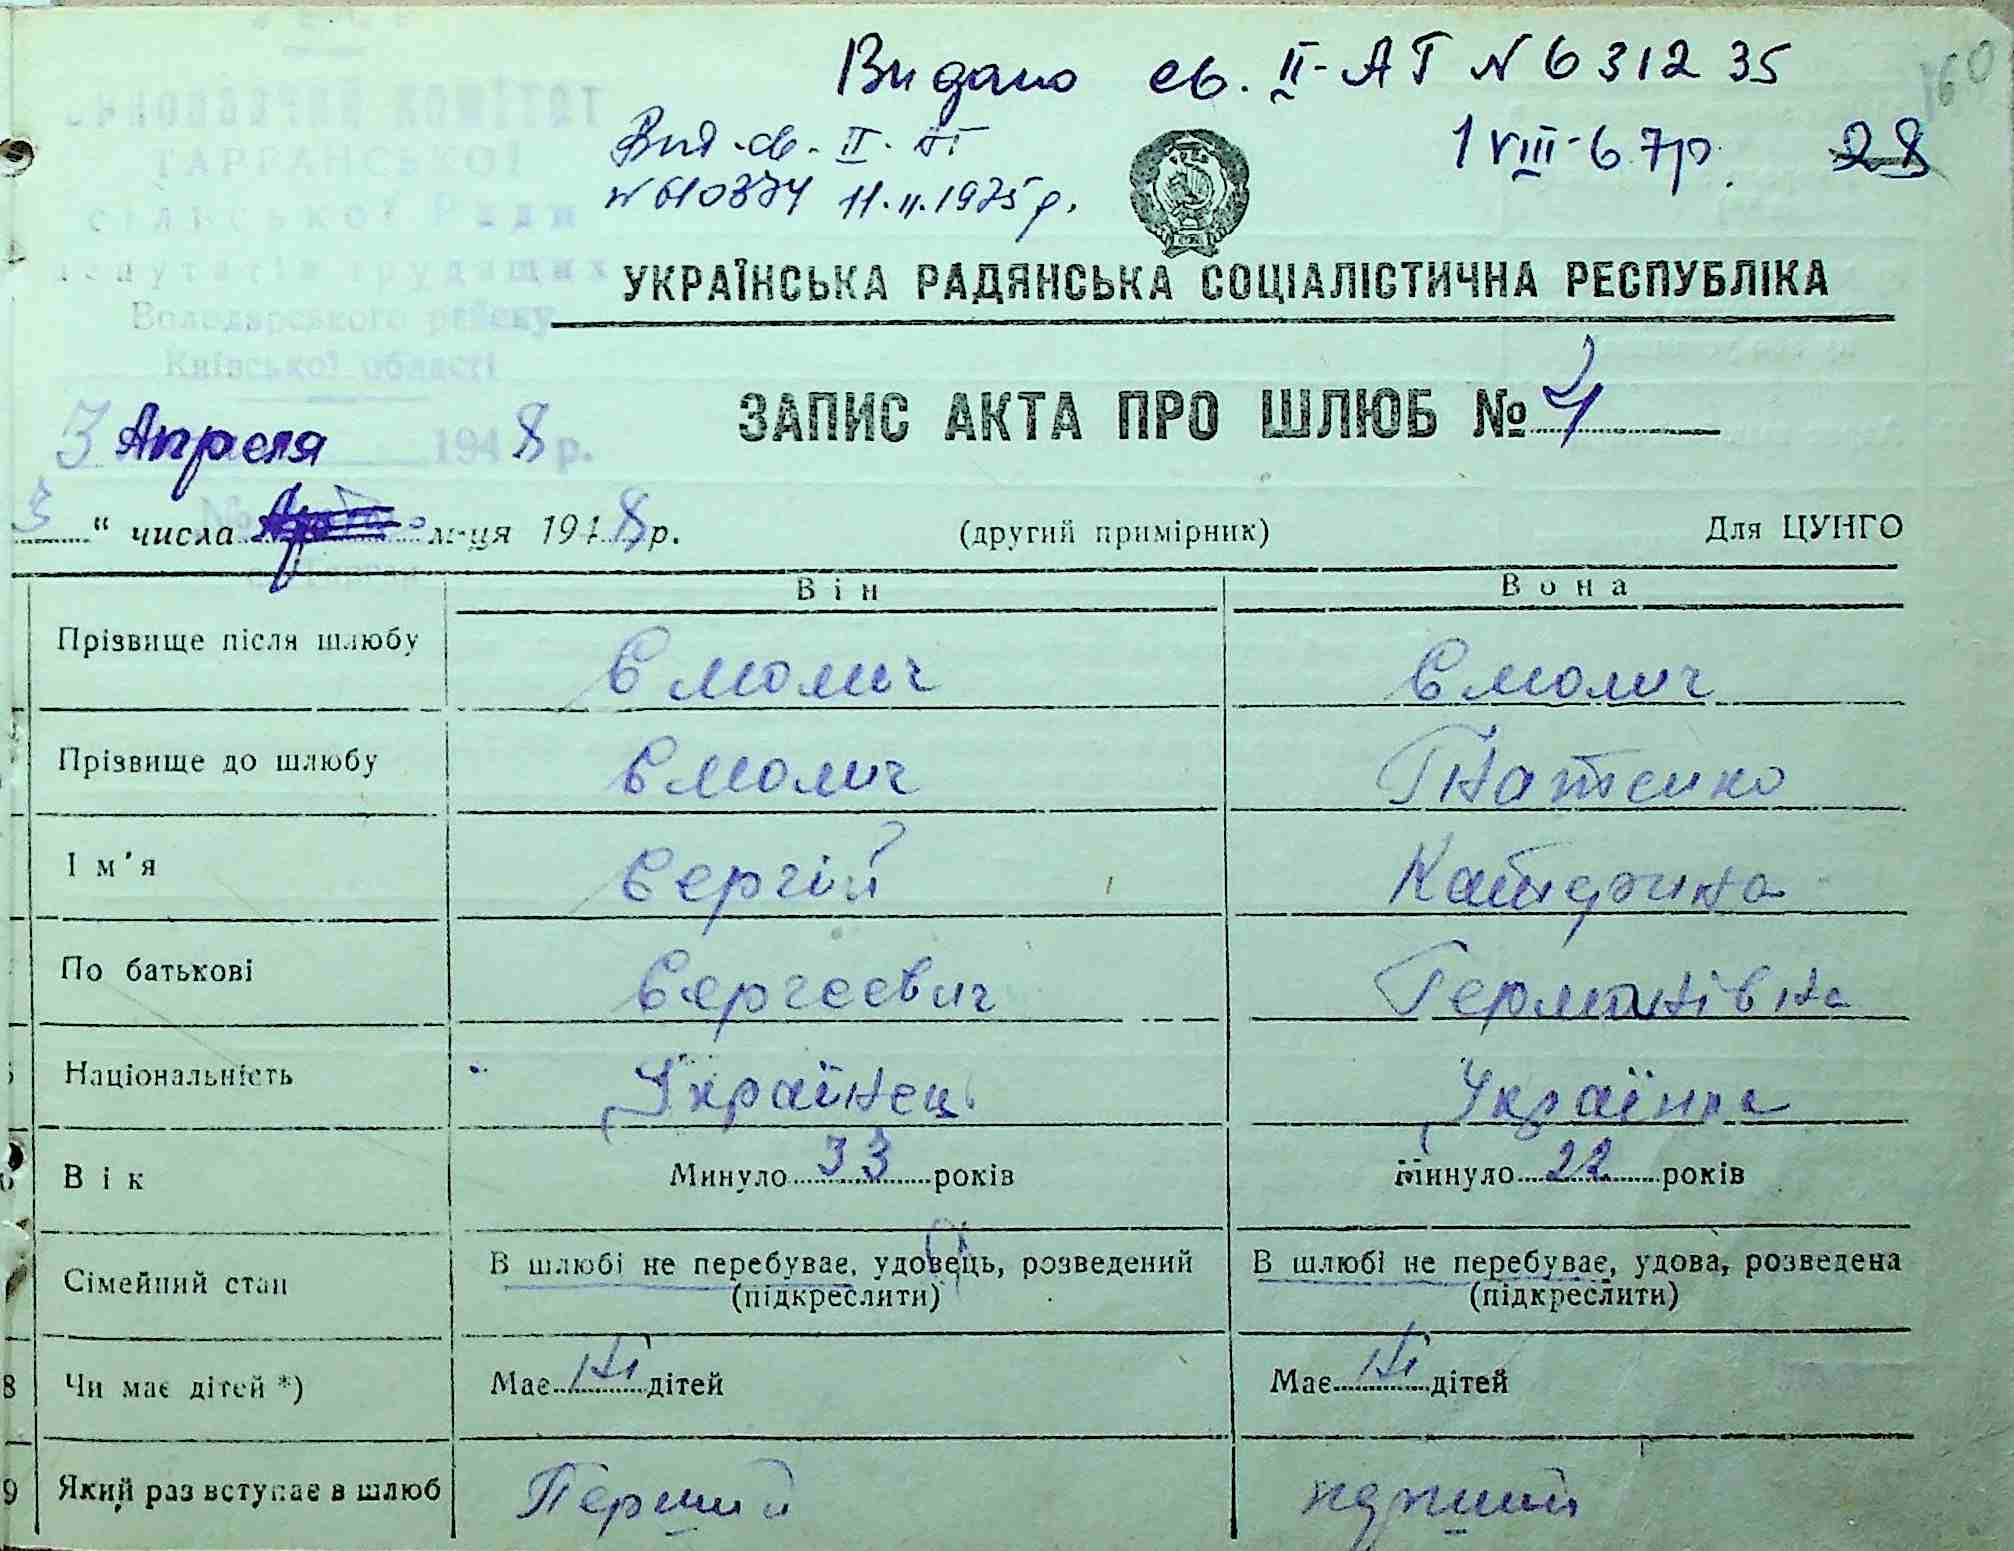 Видано св. II-АГ N 631235
160
Вид. св. II. АГ
1 VIII-67р. 28
N 610374 11.II.1975р.
ТАРГАНСЬКОЇ
сільської Ради
депутатів трудящих
Володарського району
Київської області
УКРАЇНСЬКА РАДЯНСЬКА СОЦІАЛІСТИЧНА РЕСПУБЛІКА
ЗАПИС АКТА ПРО ШЛЮБ №
3 Апреля 1948 р.
3 " числа м-ця 1948 р. (другий примірник) Для ЦУНГО
Він Вона
Прізвище після шлюбу Смолич Смолич
Прізвище до шлюбу Смолич Гнатенко
Ім'я Сергій Катерина
По батькові Сергеевич Германівна
Національність Українець Українка
Вік Минуло 33 років Минуло 22 років
Сімейний стан В шлюбі не перебуває, удовець, розведений В шлюбі не перебуває, удова, розведена
(підкреслити) (підкреслити)
8 Чи має дітей *) Має ні дітей Має ні дітей
9 Який раз вступає в шлюб Перший перший